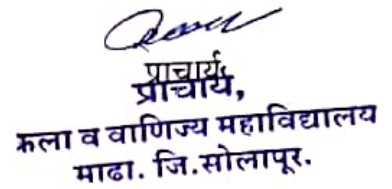 प्राचार्य,
प्राचार्य,
कला व वाणिज्य महाविद्यालय
माढा. जि.सोलापूर.